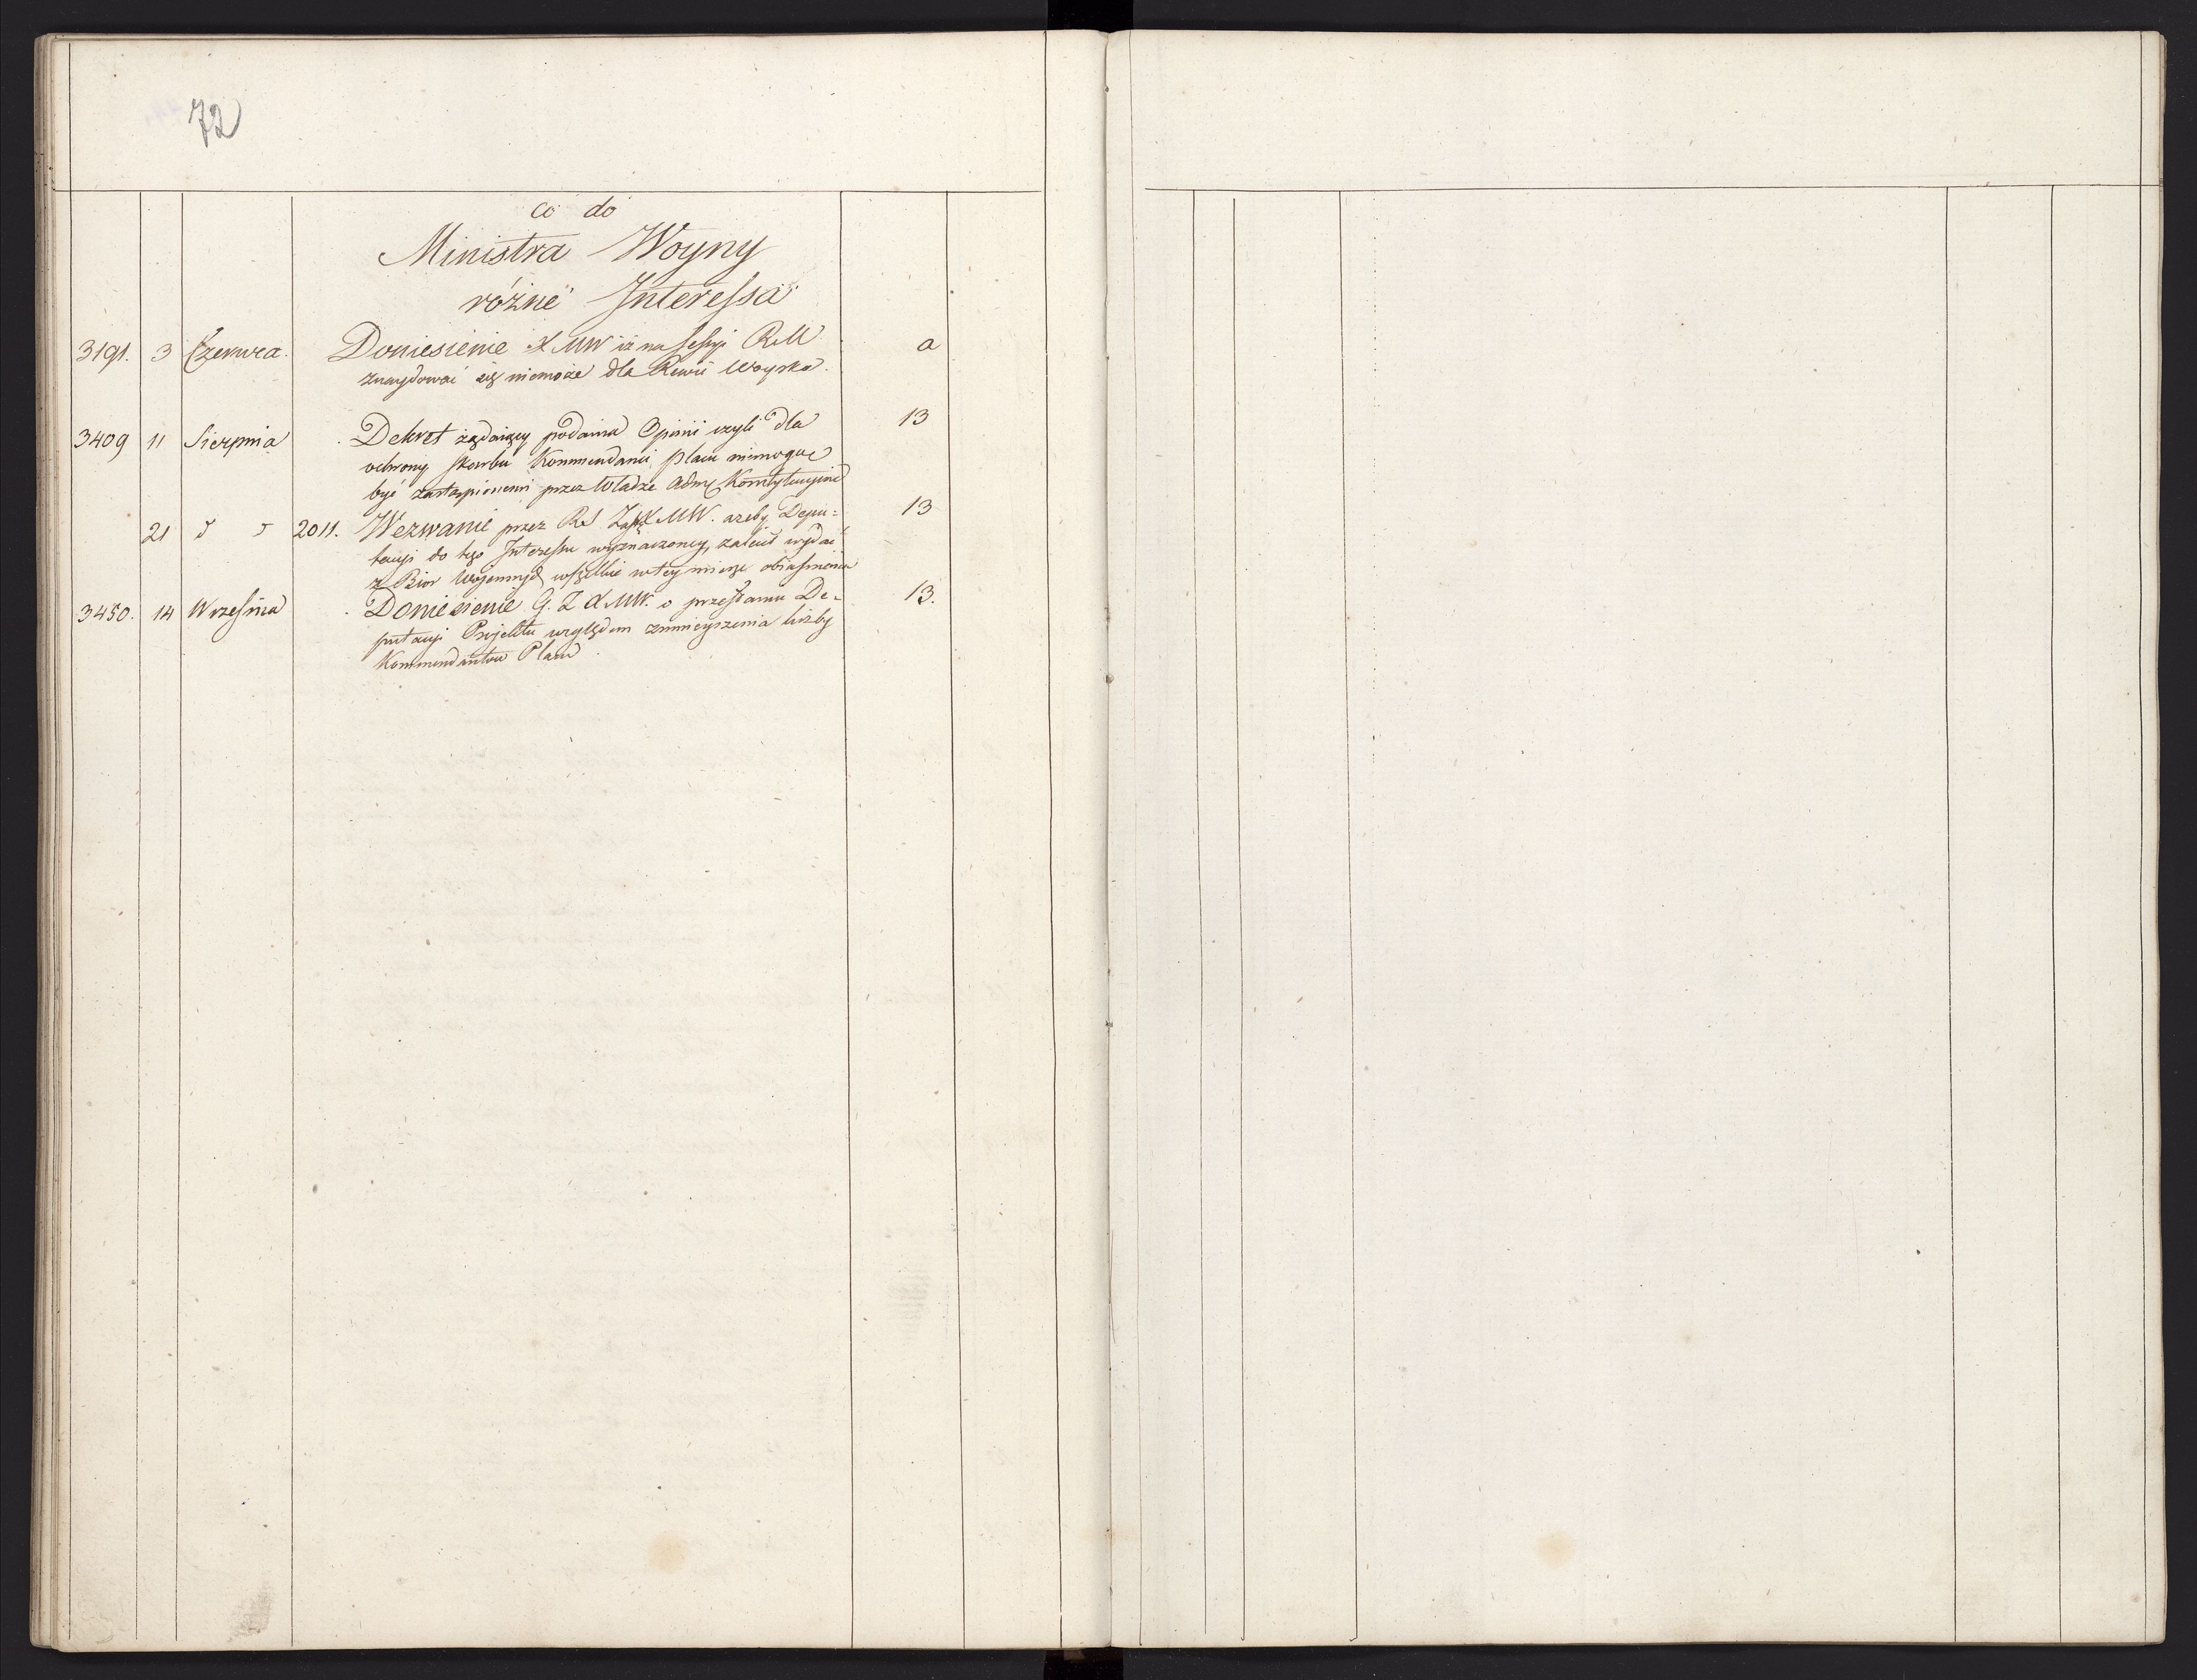 72
co do
Ministra Woyny
różne Interessa
3191. 3 Czerwca. Doniesienie X MW iż na Sessyi RM a
znaydować się niemoże dla Rewii Woyska.
3409 11 Sierpnia Dekret żądaiący podania Opinii czyli dla 13
ochrony skarbu Kommendanci placu niemogą
być zastąpionemi przez Władze Adm Konstytucyine
21 d d 2011. Wezwanie przez RS MW. ażeby Depu= 13
tacyi do tego Interessu wyznaczoney, zalecił wydać
z Biór Woiennych wszelkie w tey mierze obiaśnienia
3450. 14 Września Doniesienie G. Z MW. o przesłaniu De= 13.
putacyi Projektu względem zmnieyszenia liczby
Kommendantów Placu